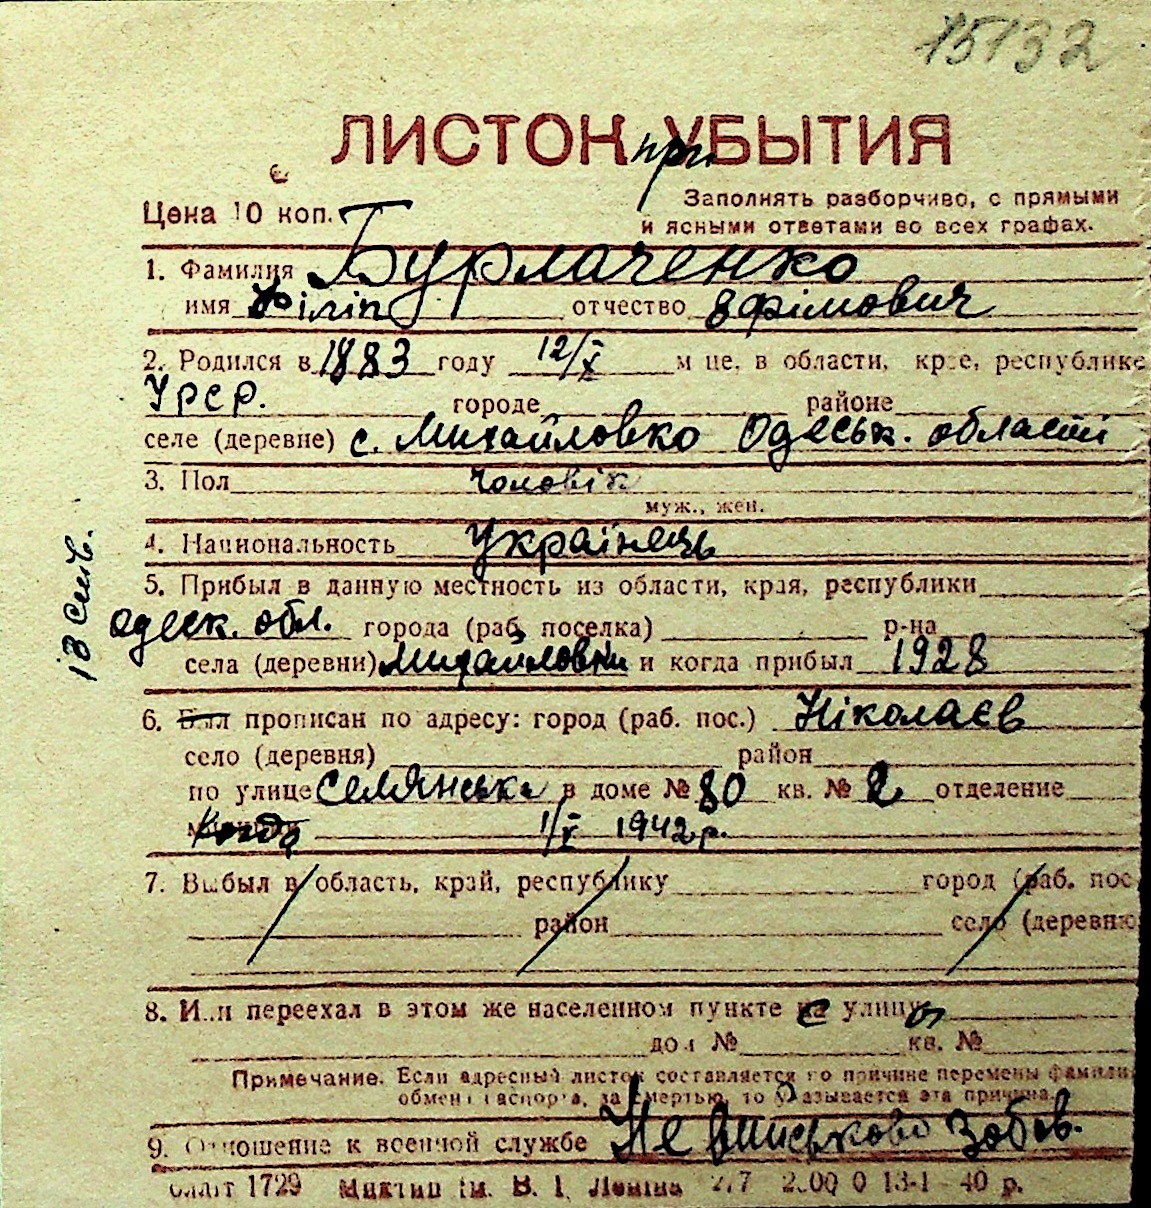 15132
ЛИСТОК при УБЫТИЯ
Цена 10 коп.
Заполнять разборчиво, с прямыми
и ясными ответами во всех графах.
1. Фамилия Бурлаченко
имя Філіп отчество Єфімович
2. Родился в 1883 году 12/X м це, в области, крае, республике
УРСР. городе районе
селе (деревне) с. Михайловко Одеськ. області
3. Пол чоловік
муж., жен.
4. Национальность Українець
5. Прибыл в данную местность из области, края, республики
Одеск. обл. города (раб. поселка) р-на
села (деревни) Михайловки и когда прибыл 1928
6. Был прописан по адресу: город (раб. пос.) Ніколаєв
село (деревня) район
по улице Селянська в доме № 80 кв. № 2 отделение
1/X 1942 р.
7. Выбыл в область, край, республику город (раб. пос
район село (деревню
8. Или переехал в этом же населенном пункте с улицы
дом № кв. №
Примечание. Если адресный листок составляется по причине перемены фамилии
обмена паспорта, за смертью, то указывается эта причина.
9. Отношение к военной службе Не військово зобов.
1729 им. В. І. Леніна 40 р.